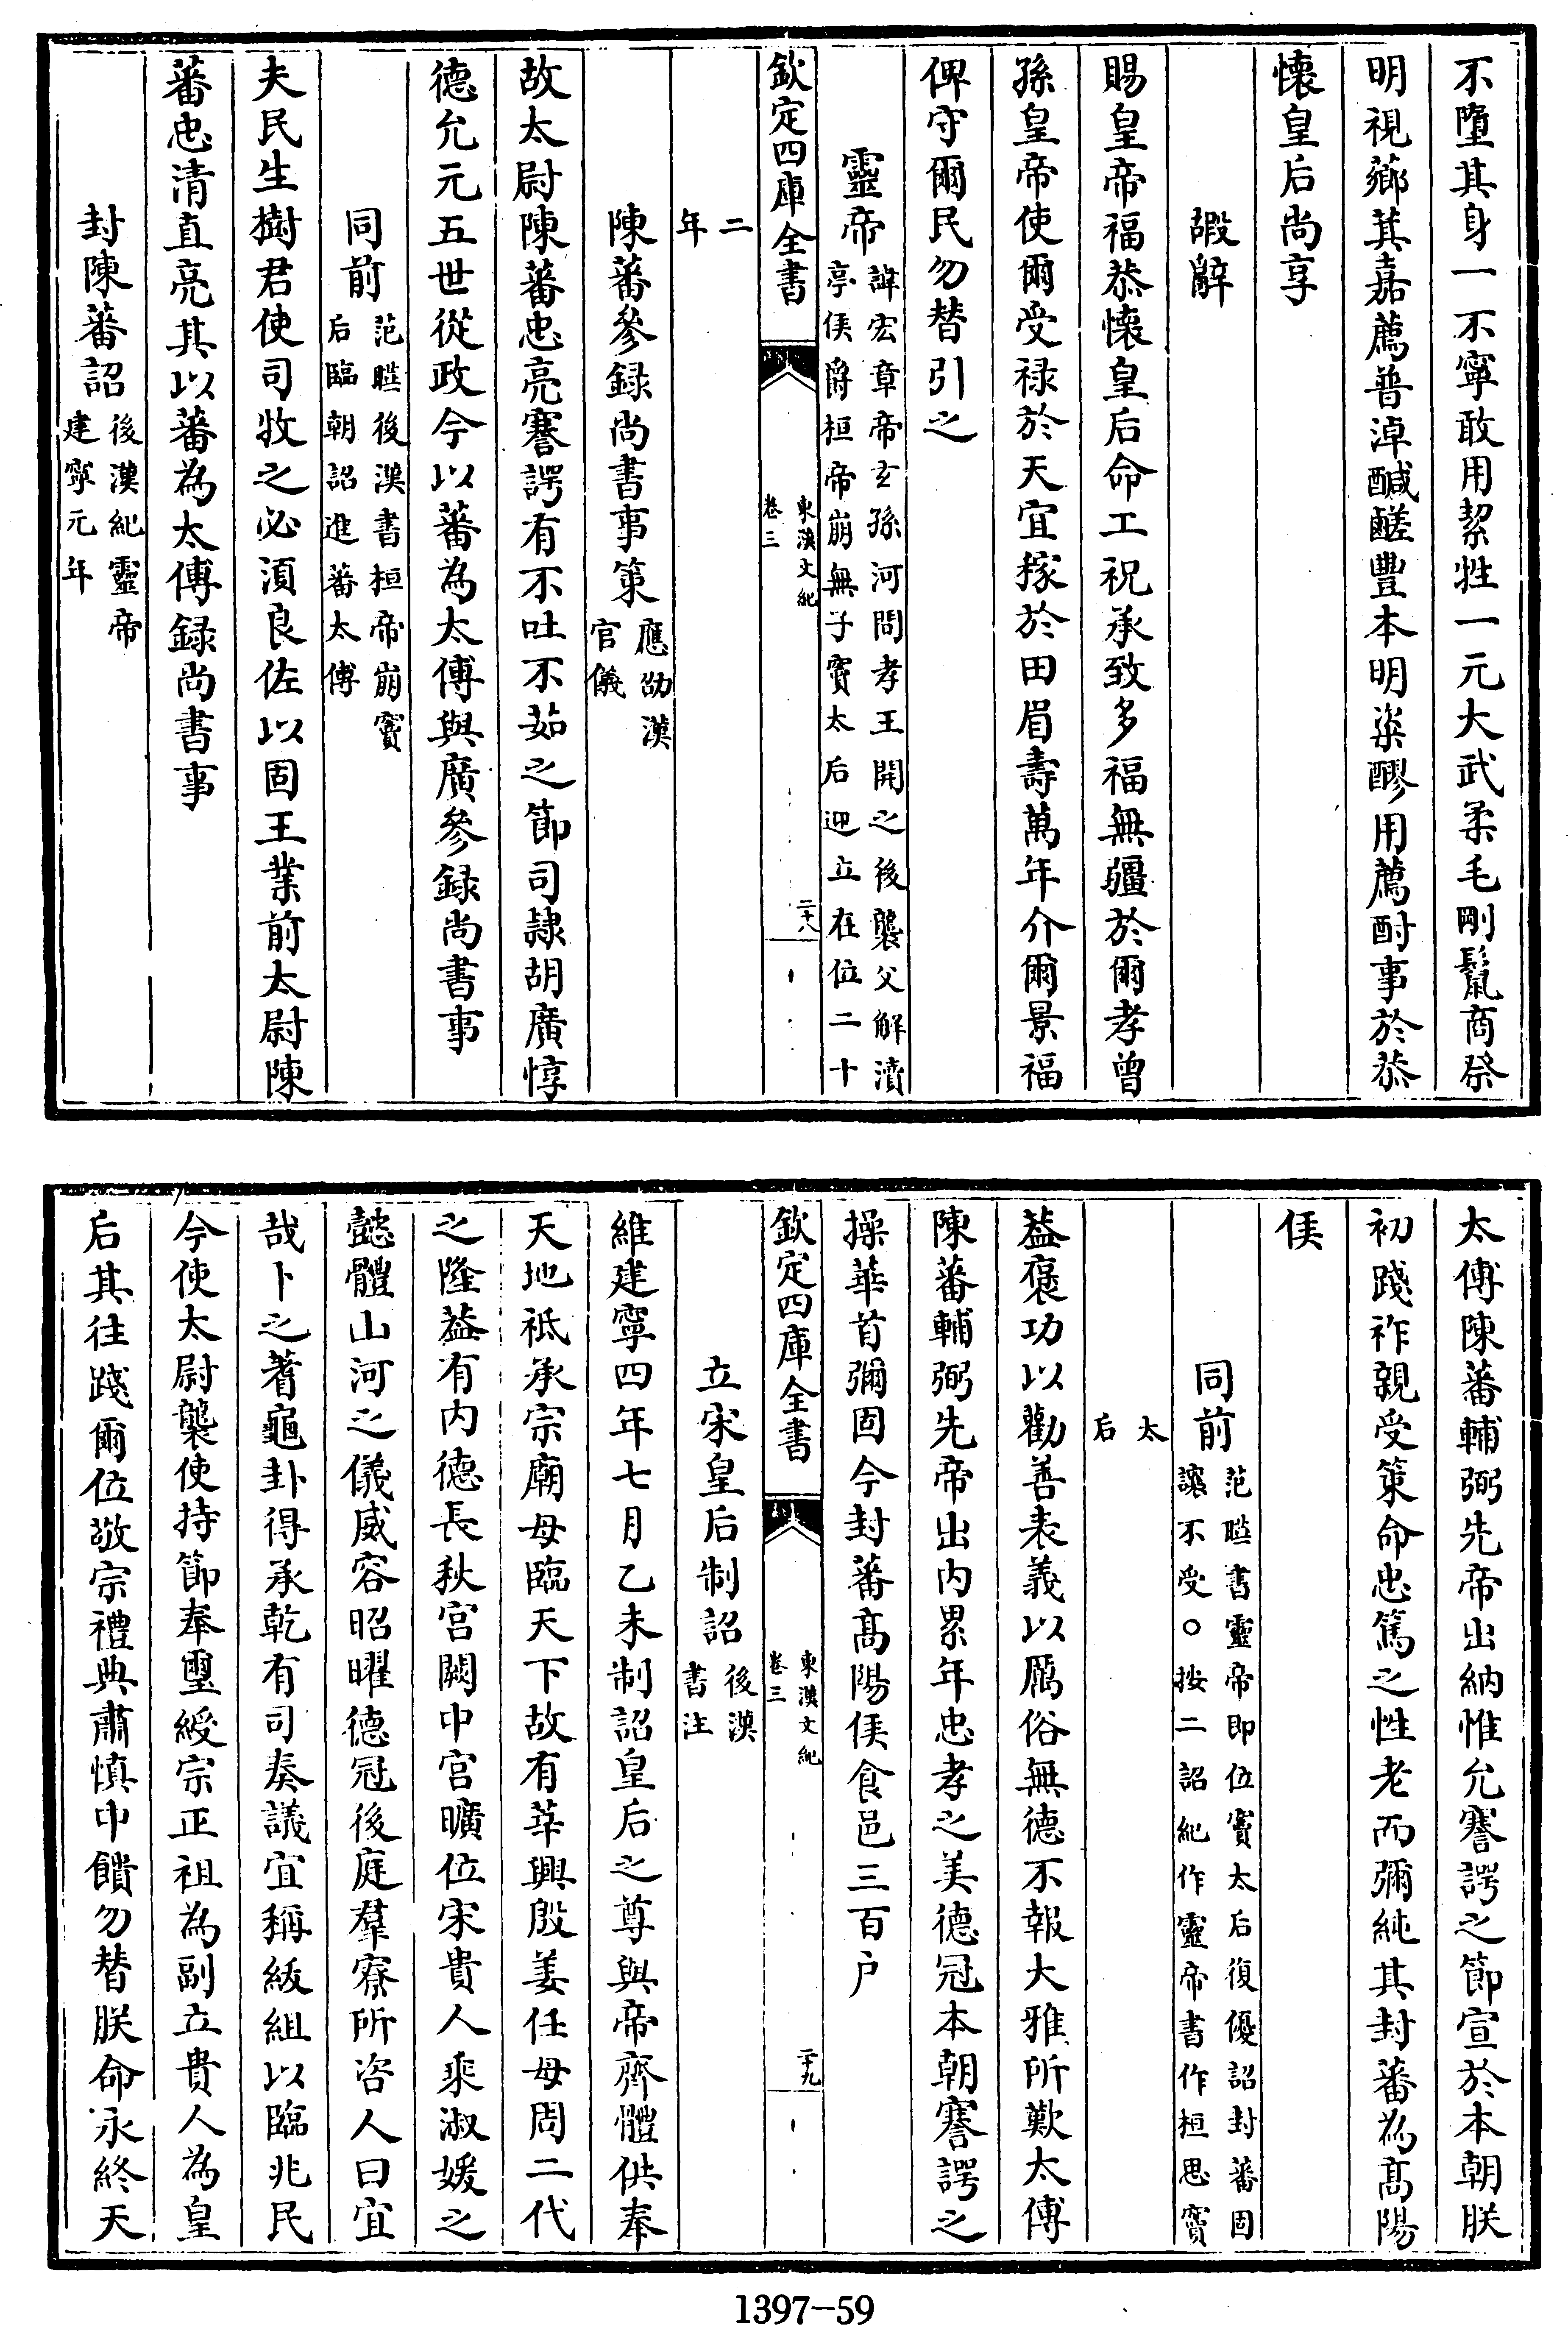 不墮其身一不寧敢用絜牲一元大武柔毛剛鬣商祭
明視薌萁嘉薦普淖鹹鹺豐本明粢醪用薦酎事於恭
懷皇后尚享
嘏辭
賜皇帝福恭懷皇后命工祝承致多福無疆於爾孝曾
孫皇帝使爾受禄於天宜稼於田眉壽萬年介爾景福
俾守爾民勿替引之
靈帝
諱宏章帝玄孫河間孝王開之後襲父解瀆
亭侯爵桓帝崩無子竇太后迎立在位二十
欽定四庫全書
東漢文紀
卷三
二十八
二
年
陳蕃參録尚書事策
應劭漢
官儀
故太尉陳蕃忠亮謇諤有不吐不茹之節司隷胡廣惇
德允元五世從政今以蕃為太傅與廣參録尚書事
同前
范曄後漢書桓帝崩竇
后臨朝詔進蕃太傅
夫民生樹君使司牧之必湏良佐以固王業前太尉陳
蕃忠清直亮其以蕃為太傅録尚書事
封陳蕃詔
後漢紀靈帝
建寧元年
太傅陳蕃輔弼先帝出納惟允謇諤之節宣於本朝朕
初踐祚親受策命忠篤之性老而彌純其封蕃為髙陽
侯
同前
范曄書靈帝即位竇太后復優詔封蕃蕃固
讓不受○按二詔紀作靈帝書作桓思竇
太
后
葢褒功以勸善表義以厲俗無德不報大雅所歎太傅
陳蕃輔弼先帝出内累年忠孝之美德冠本朝謇諤之
操華首彌固今封蕃髙陽侯食邑三百户
欽定四庫全書
東漢文紀
卷三
二十九
立宋皇后制詔
後漢
書注
維建寧四年七月乙未制詔皇后之尊與帝齊體供奉
天地祗承宗廟母臨天下故有莘興殷姜任母周二代
之隆葢有内德長秋宮闕中宮曠位宋貴人秉淑媛之
懿體山河之儀威容昭曜德冠後庭羣寮所咨人曰宜
哉卜之蓍龜卦得承乾有司奏議宜稱紱組以臨兆民
今使太尉襲使持節奉璽綬宗正祖為副立貴人為皇
后其往踐爾位敬宗禮典肅慎中饋勿替朕命永終天
1397-59